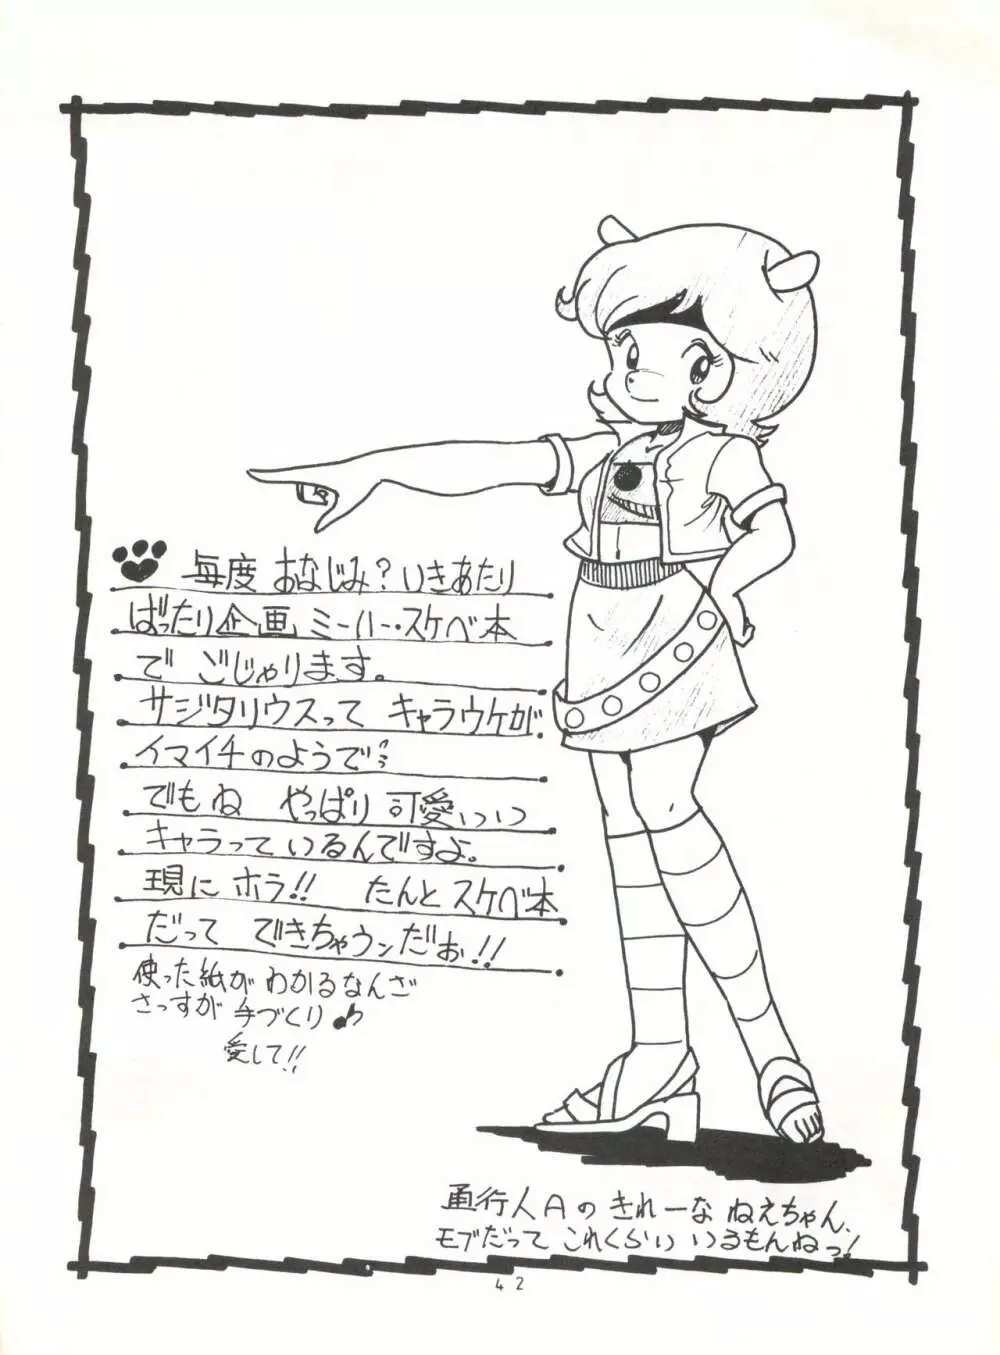 毎度 おなじみ?いきあたり
ばったり企画 ミーハー・スケベ本
で ごじゃります。
サジタリウスって キャラウケが
イマイチのようで
でもね やっぱり 可愛いいっ
キャラって いるんですよ。
現に ホラ!! たんと スケベ本
だって できちゃウンだぉ!!
使った紙が わかるなんざ
さっすが 手づくり♪
愛して!!
通行人Aの きれーな ねえちゃん、
モブだって これくらい いるもんねっ!
42